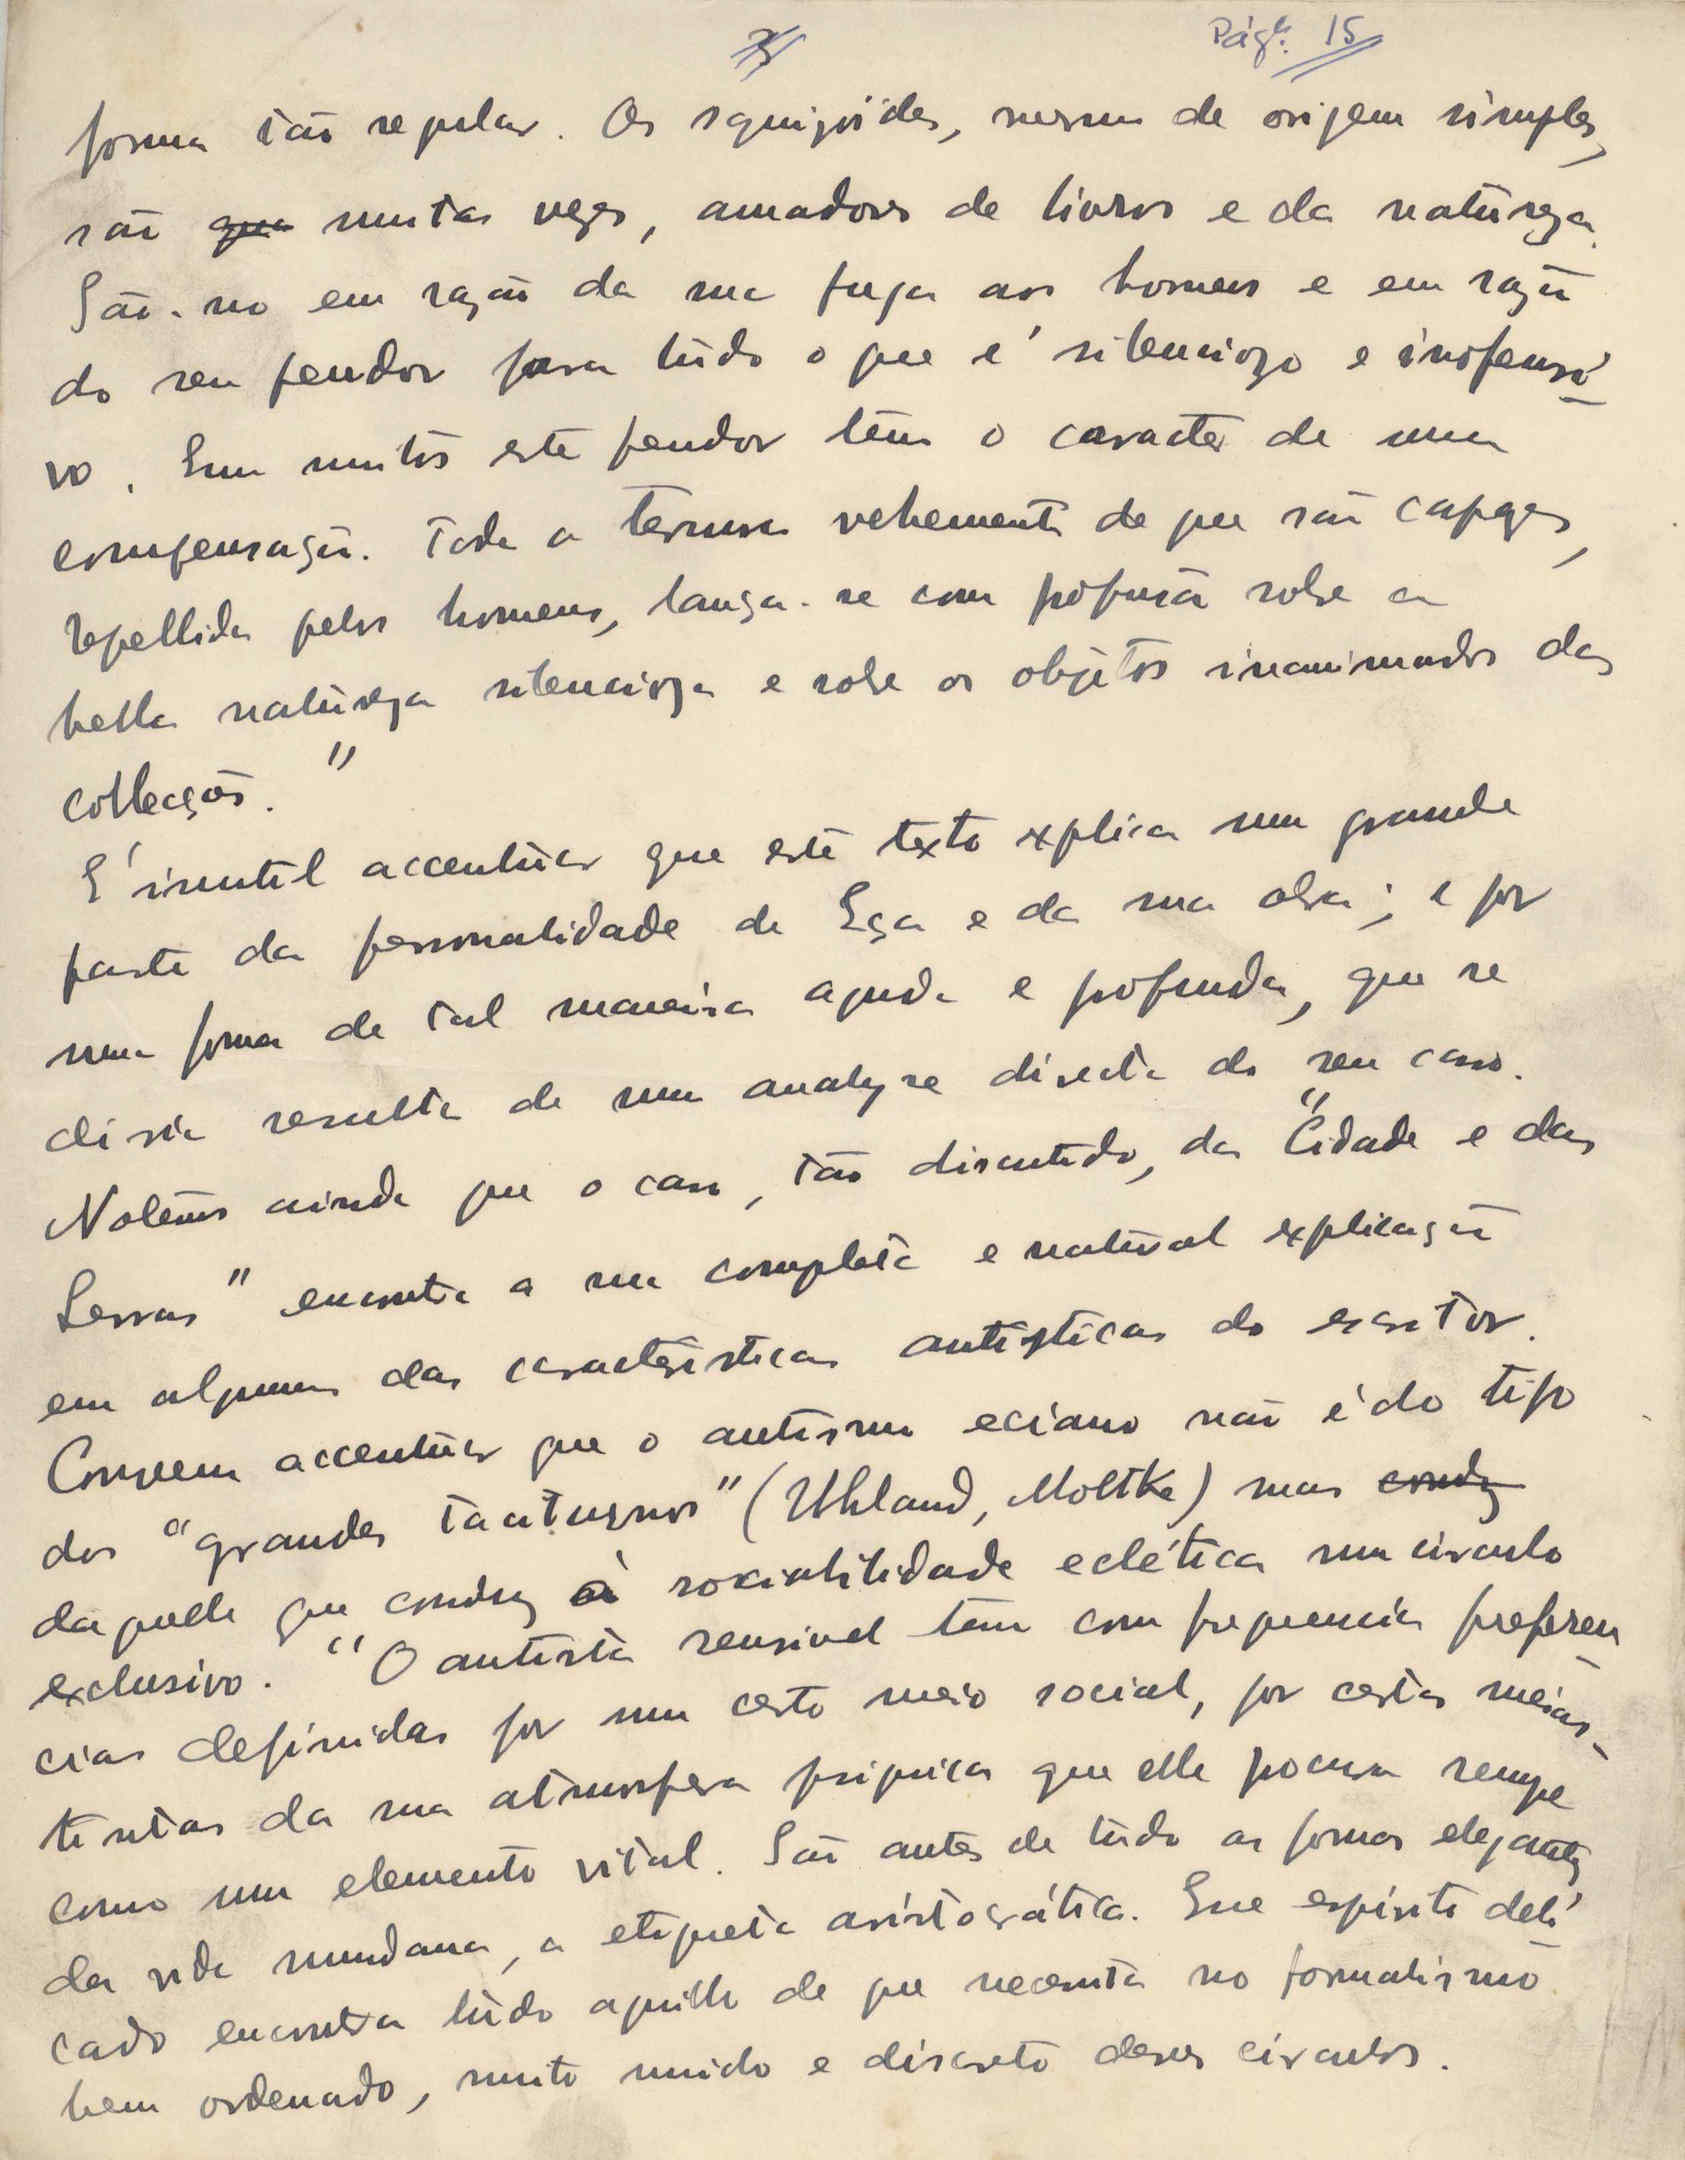 Pág.: 15
forma tão regular. Os squizóides, mesmo de origem simples,
são muitas vezes, amadores de livros e da natùreza.
São-no em razão da sua fuga aos homens e em razão
do seu pendor para tùdo o que é silencioso e inofensi-
vo. Em muitos este pendor tem o caracter de uma
compensação. Toda a ternura vehemente de que são capazes,
repellida pelos homens, lança-se com profusão sobre a
bella natùreza silenciosa e sobre os objetos inanimados das
collecções."
É inutil accentùar que este texto explica uma grande
parte da personalidade de Eça e da sua obra; e por
uma forma de tal maneira aguda e profunda, que se
diria resulta de uma analyse directa do seu caso.
Notêmos ainda que o caso, tão discutido, da "Cidade e das
Serras" encontra a sua completa e natùral explicação
em algumas das caracteristicas autisticas do escritor.
Convem accentùar que o autismo eciano não é do tipo
dos "grandes taciturnos" (Uhland, Moltke) mas
daquelle que conduz à sociabilidade eclética num circulo
exclusivo. "O autista sensivel tem com frequencia preferen-
cias definidas por um certo meio social, por certas meias-
tintas da sua atmosfera psiquica que elle procura sempre
como um elemento vital. São antes de tùdo as formas elegantes
da vida mundana, a etiqueta aristocrática. Sue espirito deli-
cado encontra tùdo aquillo de que necessita no formalismo
bem ordenado, muito unido e discreto desses circulos.